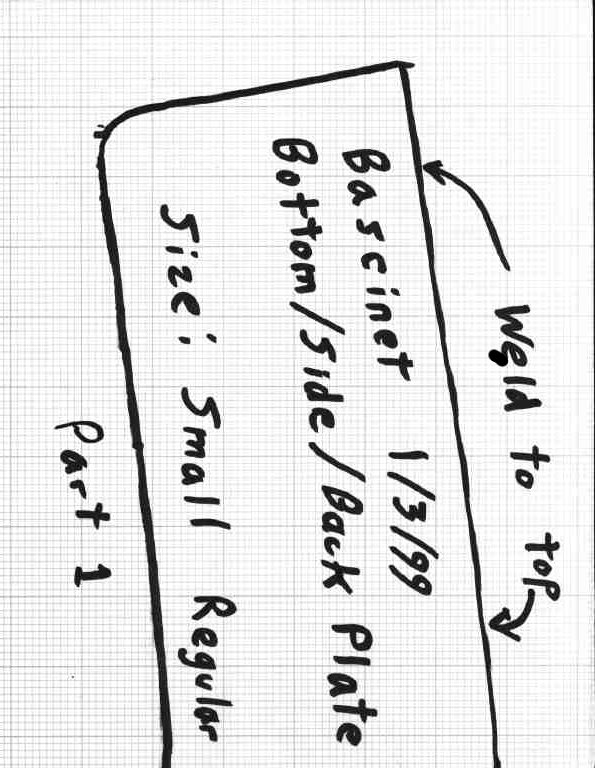 Weld to top
Bascinet 1/3/99
Bottom/Side/Back Plate
Size: Small Regular
Part 1